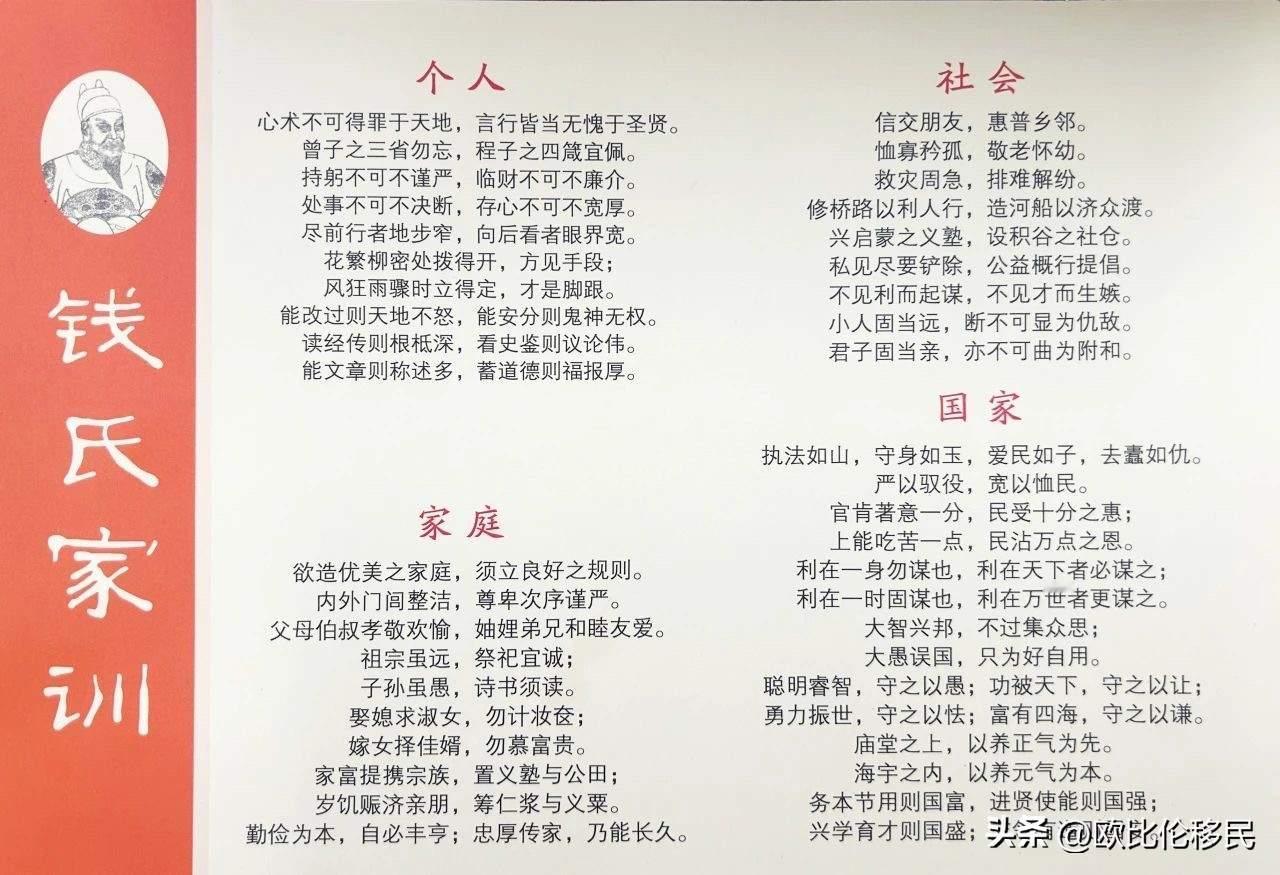 钱氏家训
个人
心术不可得罪于天地，言行皆当无愧于圣贤。
曾子之三省勿忘，程子之四箴宜佩。
持躬不可不谨严，临财不可不廉介。
处事不可不决断，存心不可不宽厚。
尽前行者地步窄，向后看者眼界宽。
花繁柳密处拨得开，方见手段；
风狂雨骤时立得定，才是脚跟。
能改过则天地不怒，能安分则鬼神无权。
读经传则根柢深，看史鉴则议论伟。
能文章则称述多，蓄道德则福报厚。
家庭
欲造优美之家庭，须立良好之规则。
内外门闾整洁，尊卑次序谨严。
父母伯叔孝敬欢愉，妯娌弟兄和睦友爱。
祖宗虽远，祭祀宜诚；
子孙虽愚，诗书须读。
娶媳求淑女，勿计妆奁；
嫁女择佳婿，勿慕富贵。
家富提携宗族，置义塾与公田；
岁饥赈济亲朋，筹仁浆与义粟。
勤俭为本，自必丰亨；忠厚传家，乃能长久。
社会
信交朋友，惠普乡邻。
恤寡矜孤，敬老怀幼。
救灾周急，排难解纷。
修桥路以利人行，造河船以济众渡。
兴启蒙之义塾，设积谷之社仓。
私见尽要铲除，公益概行提倡。
不见利而起谋，不见才而生嫉。
小人固当远，断不可显为仇敌。
君子固当亲，亦不可曲为附和。
国家
执法如山，守身如玉，爱民如子，去蠹如仇。
严以驭役，宽以恤民。
官肯著意一分，民受十分之惠；
上能吃苦一点，民沾万点之恩。
利在一身勿谋也，利在天下者必谋之；
利在一时固谋也，利在万世者更谋之。
大智兴邦，不过集众思；
大愚误国，只为好自用。
聪明睿智，守之以愚；功被天下，守之以让；
勇力振世，守之以怯；富有四海，守之以谦。
庙堂之上，以养正气为先。
海宇之内，以养元气为本。
务本节用则国富，进贤使能则国强；
兴学育才则国盛；
头条 @欧比伦移民